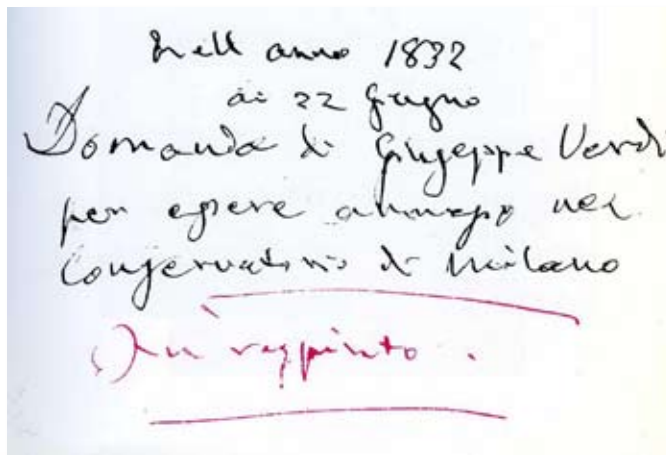 Nell anno 1832
ai 22 Giugno
Domanda di Giuseppe Verdi
per essere ammesso nel
Conservatorio di Milano
Fu respinto.